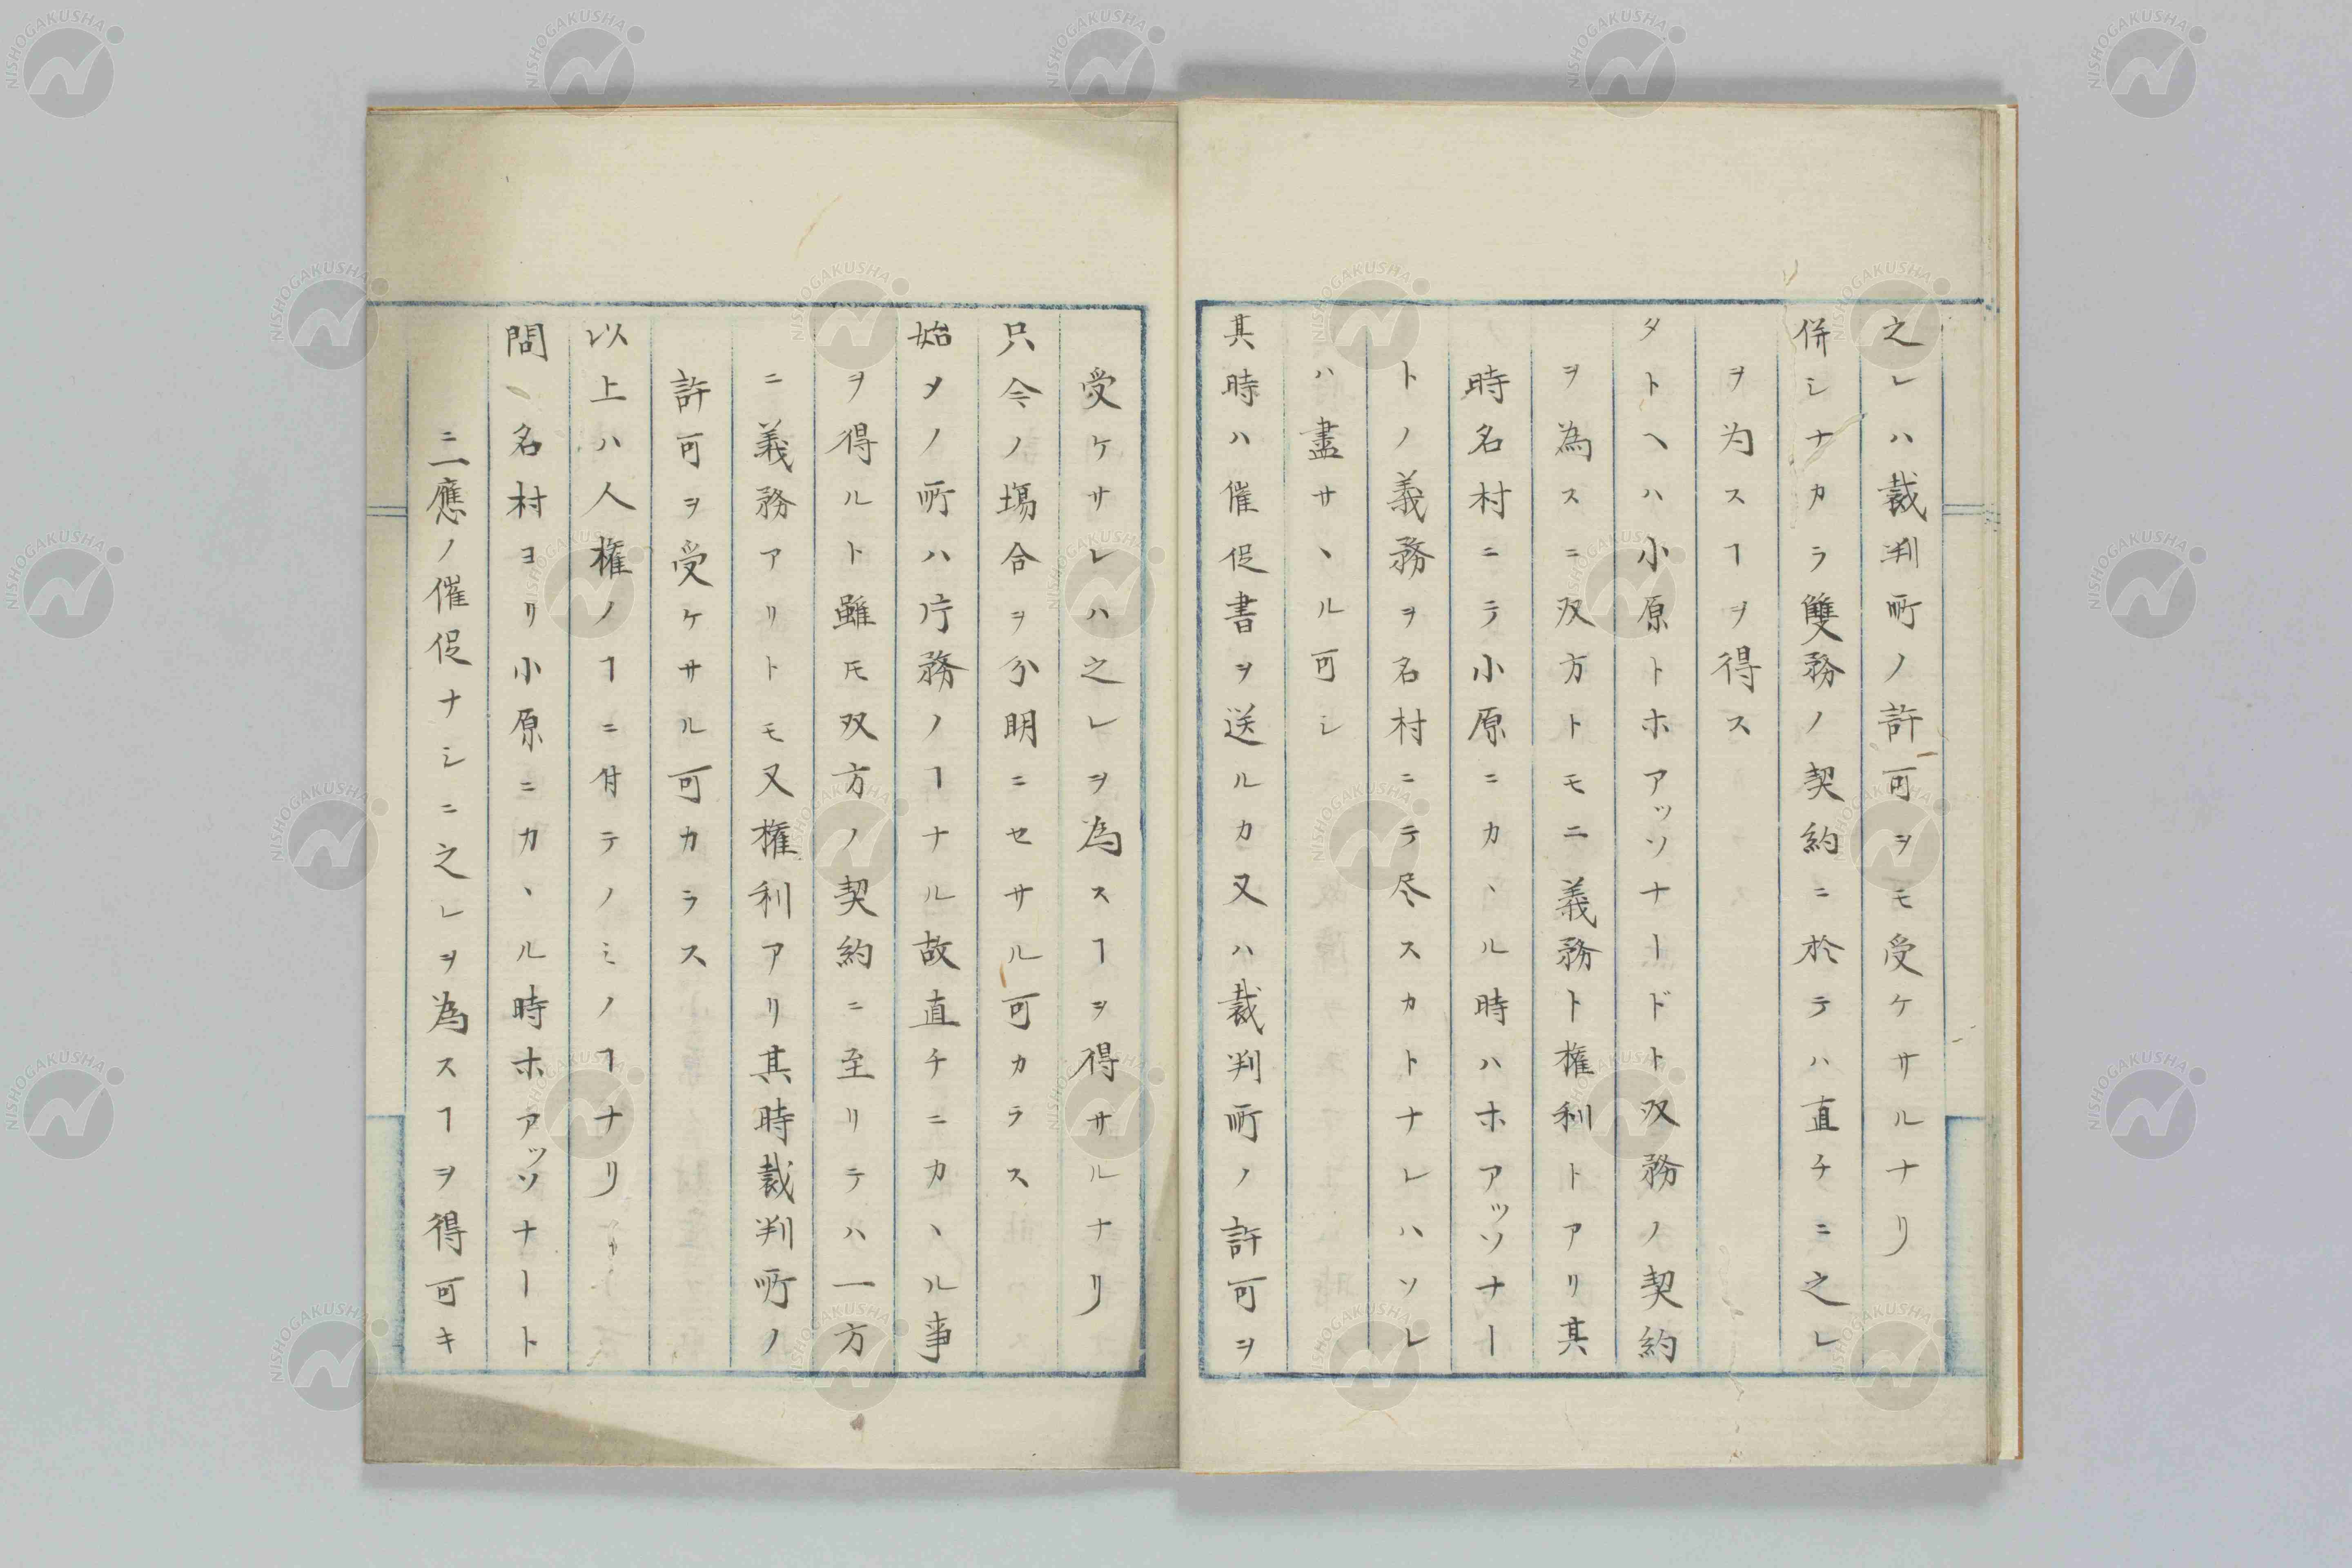 之レハ裁判所ノ許可ヲモ受ケサルナリ
併シナカラ雙務ノ契約ニ於テハ直チニ之レ
ヲ为スヿヲ得ス
タトヘハ小原トホアッソナードト双務ノ契約
ヲ為スニ双方トモニ義務ト権利トアリ其
時名村ニテ小原ニカヽル時ハホアッソナー
トノ義務ヲ名村ニテ尽スカトナレハソレ
ハ盡サヽル可シ
其時ハ催促書ヲ送ルカ又ハ裁判所ノ許可ヲ
受ケサレハ之レヲ為スヿヲ得サルナリ
只今ノ塲合ヲ分明ニセサル可カラス
始メノ所ハ庁務ノヿナル故直チニカヽル事
ヲ得ルト雖モ双方ノ契約ニ至リテハ一方
ニ義務アリトモ又権利アリ其時裁判所ノ
許可ヲ受ケサル可カラス
以上ハ人権ノヿニ付テノミノヿナリ
問、名村ヨリ小原ニカヽル時ホアッソナート
ニ一應ノ催促ナシニ之レヲ為スヿヲ得可キ
NISHOGAKUSHA